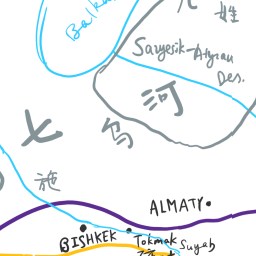 Balka
姓
Saryesik-Atyrau
Des.
河
七
鸟
施
ALMATY
BISHKEK
Tokmak
Suyab